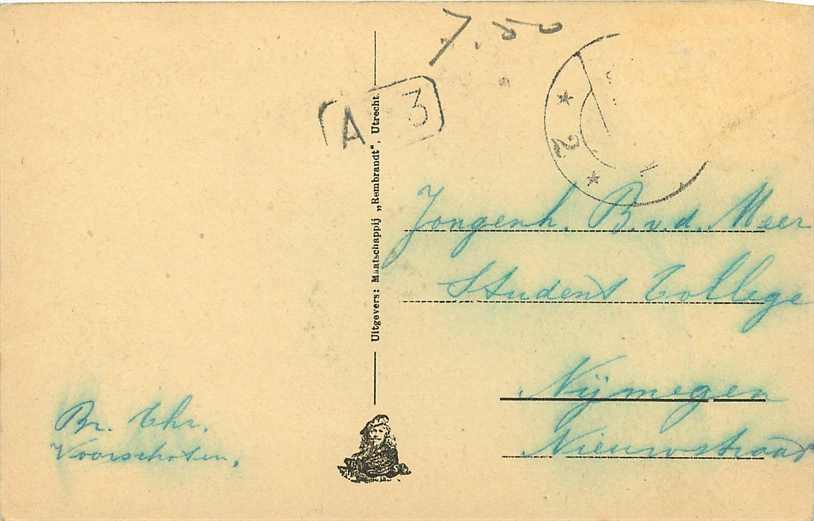 7.50
A 3
* 2 *
Uitgevers: Maatschappij „Rembrandt", Utrecht.
Jongenh. B. v. d. Meer
Student College
Nijmegen
Nieuwstraat
Br. Chr.
Voorschoten.